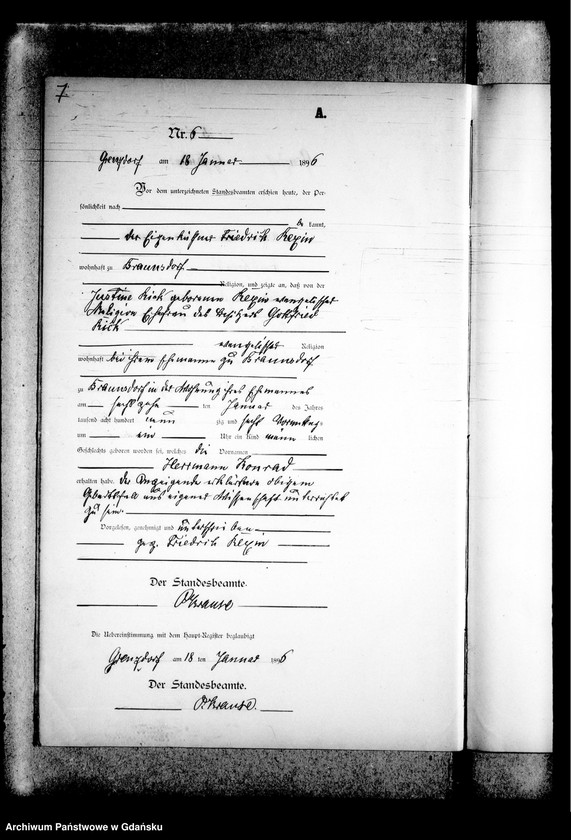 7
A.
Nr. 6
Grenzdorf am 18 Januar 1896
Vor dem unterzeichneten Standesbeamten erschien heute, der Per-
sönlichkeit nach
be kannt,
der Eigenkäthner Friedrich Rexin
wohnhaft zu Braunsdorf
Religion, und zeigte an, daß von der
Justine Kirk geborenen Rexin evangelischer
Religion Ehefrau des Besitzers Gottfried
Kirk
evangelischer Religion
wohnhaft bei ihrem Ehemanne zu Braunsdorf
zu Braunsdorf in der Wohnung ihres Ehemannes
am sechszehn ten Januar des Jahres
tausend acht hundert neun zig und sechs Vormittags
um ein Uhr ein Kind männ lichen
Geschlechts geboren worden sei, welches die Vornamen
Herrmann Konrad
erhalten habe. Der Anzeigende erklärte obigem
Geburtsfall aus eigener Wissenschaft unterrichtet
zu sein.
Vorgelesen, genehmigt und unterschrieben
gez. Friedrich Rexin
Der Standesbeamte.
Krause
Die Uebereinstimmung mit dem Haupt-Register beglaubigt
Grenzdorf am 18 ten Januar 1896
Der Standesbeamte.
Krause.
Archiwum Państwowe w Gdańsku